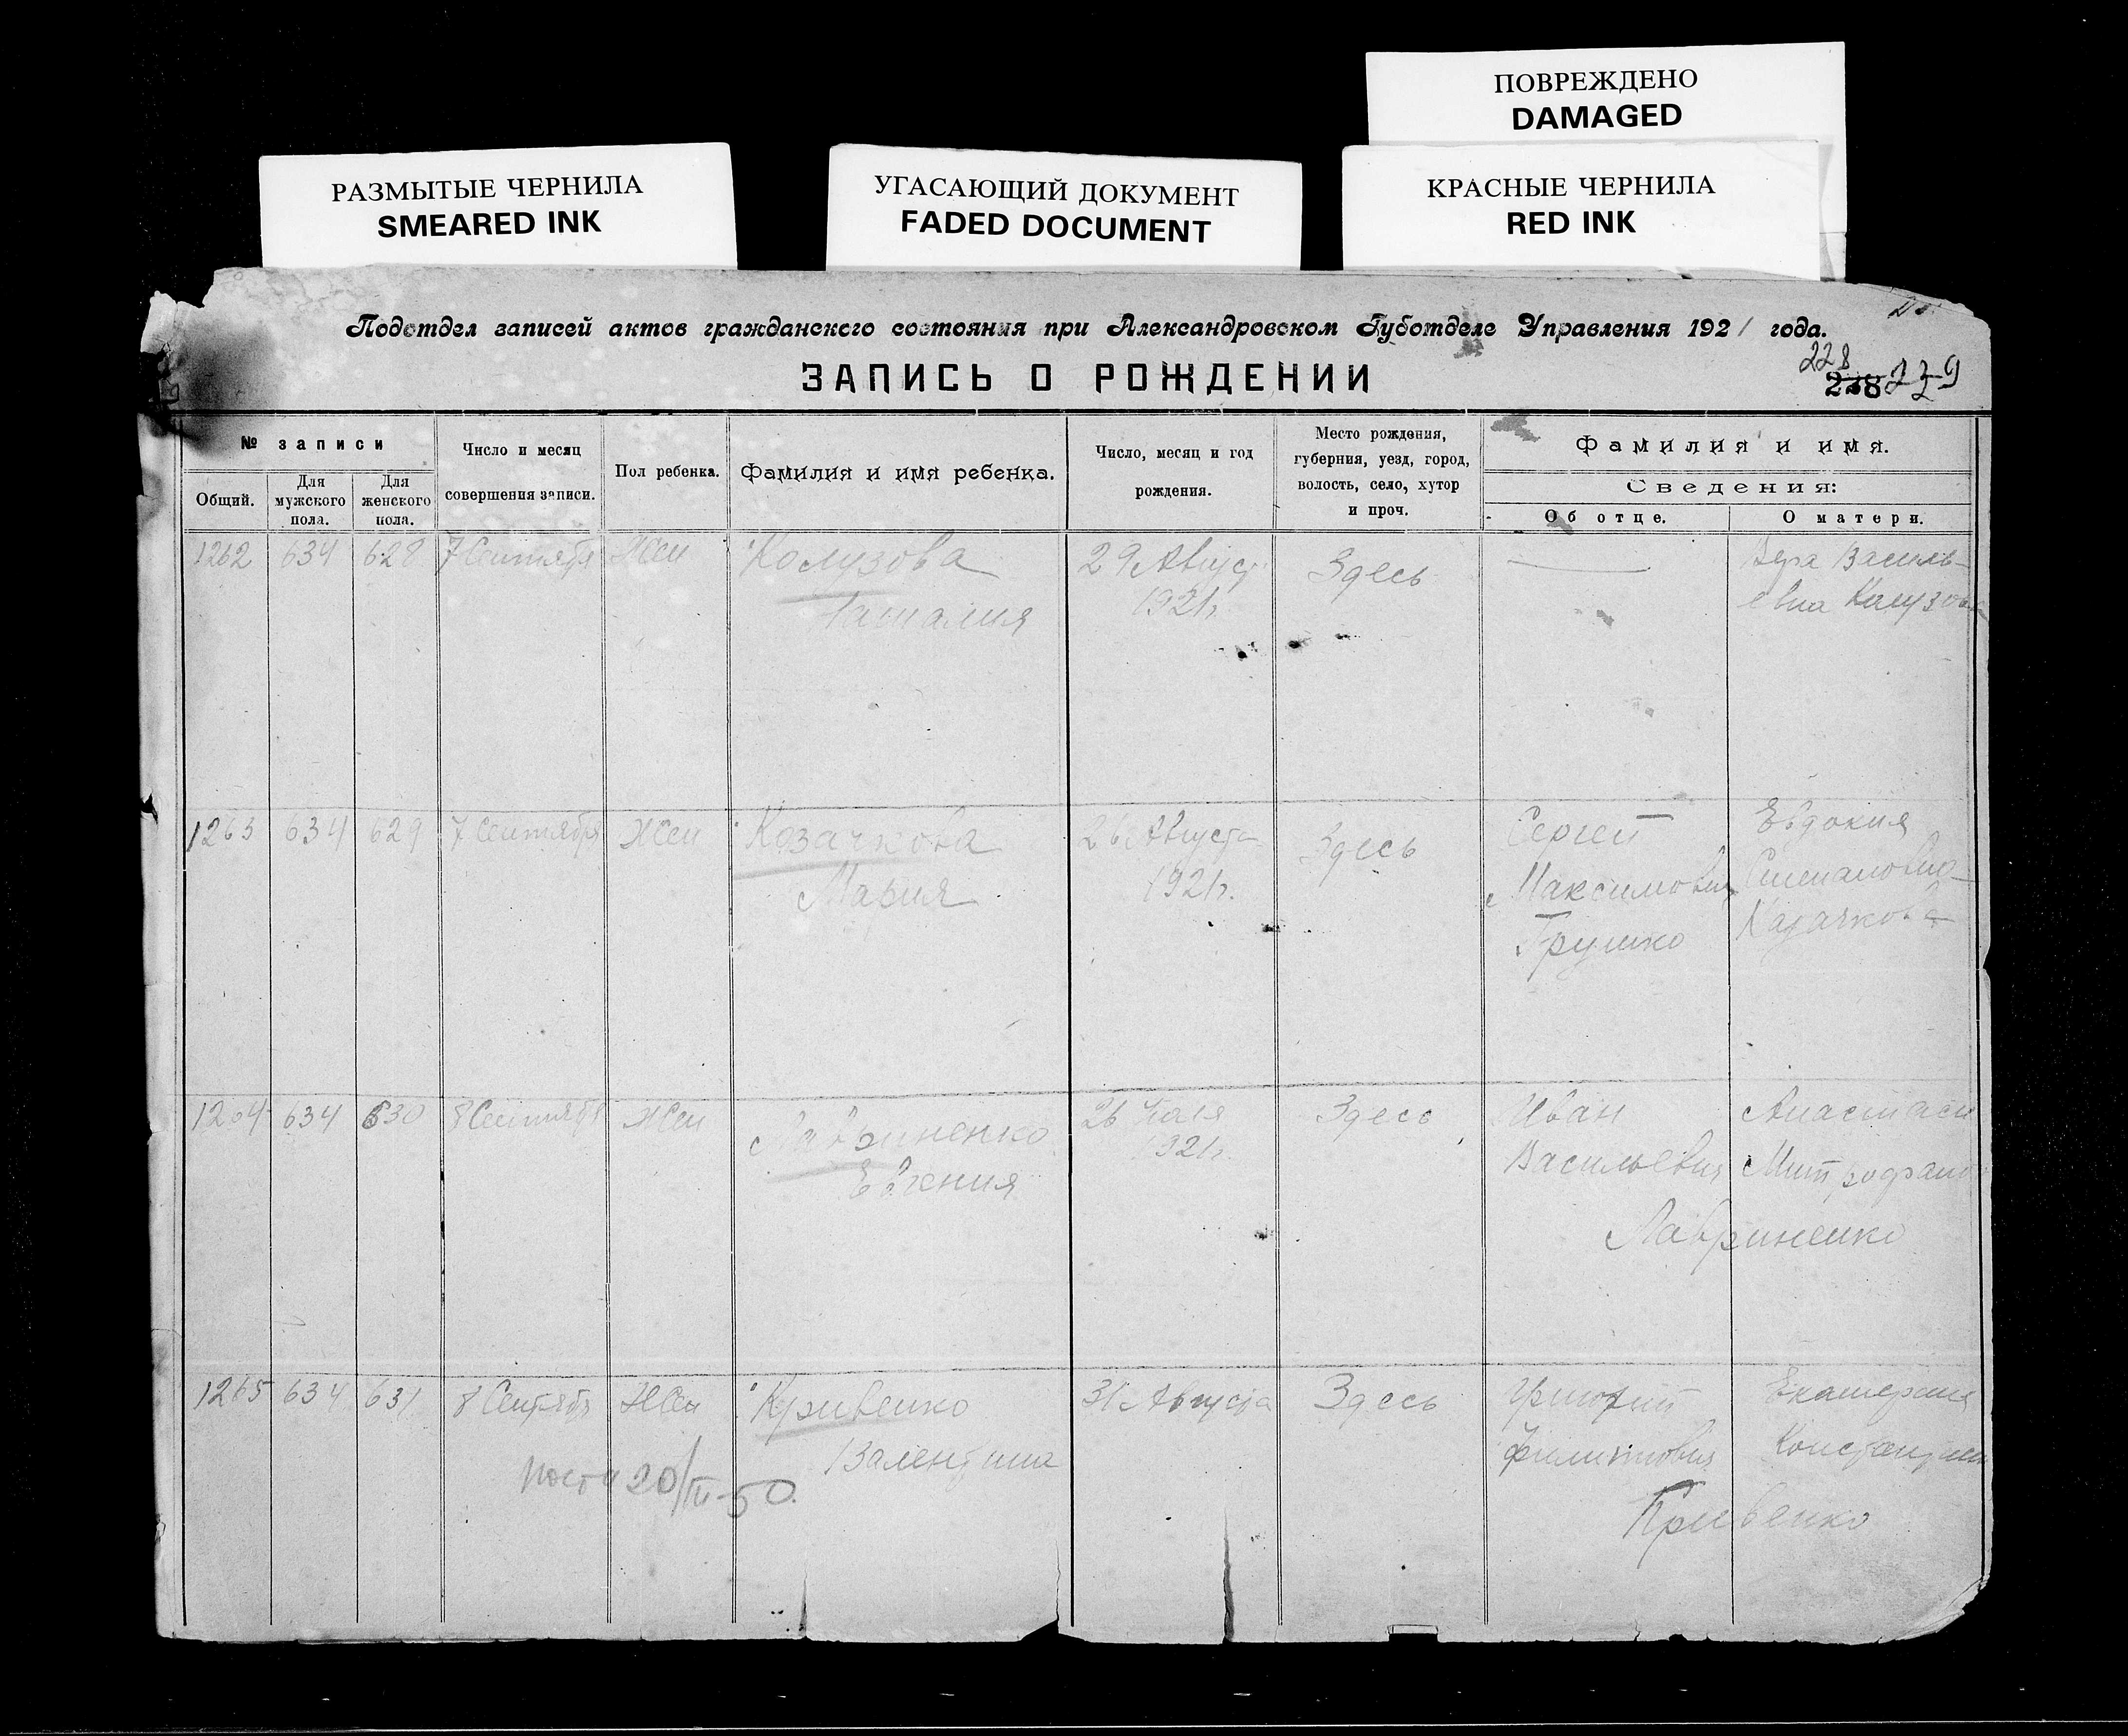 ПОВРЕЖДЕНО
DAMAGED
РАЗМЫТЫЕ ЧЕРНИЛА
SMEARED INK
УГАСАЮЩИЙ ДОКУМЕНТ
FADED DOCUMENT
КРАСНЫЕ ЧЕРНИЛА
RED INK
Подотдел записей актов гражданского состояния при Александровском Губотделе Управления 1921 года.
ЗАПИСЬ О РОЖДЕНИИ
228
228 229
№ записи
Общий.
Для мужского пола.
Для женского пола.
Число и месяц
совершения записи.
Пол ребенка.
Фамилия и имя ребенка.
Число, месяц и год
рождения.
Место рождения,
губерния, уезд, город,
волость, село, хутор
и проч.
Фамилия и имя.
Сведения:
Об отце.
О матери.
1262 634 628 7 Сентября Жен Колузова 29 Август Здесь — Вера Василь-
Наталия 1921г. евна
1263 634 629 7 Сентября Жен Козачкова 26 Августа Здесь Сергей Евдокия
Мария 1921г. Максимович Степановна
Грушко Казачкова
1264 634 630 8 Сентября Жен Лавриненко 26 Здесь Иван Анастаси
Евгения 1921г. Васильевич Митрофано
Лавриненко
1265 634 631 8 Сентября Жен Кривенко 31 Августа Здесь Екатерина
Валентина Филиппович
20/IV-50.
Кривенко